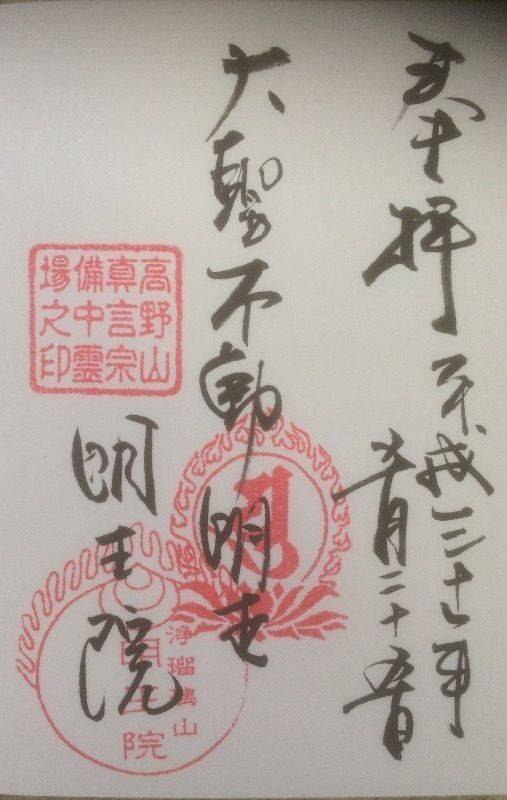 奉拝
平成三十年
五月二十五日
大聖不動明王
明王院
高野山
真言宗
備中霊
場之印
浄瑠璃山
明王院